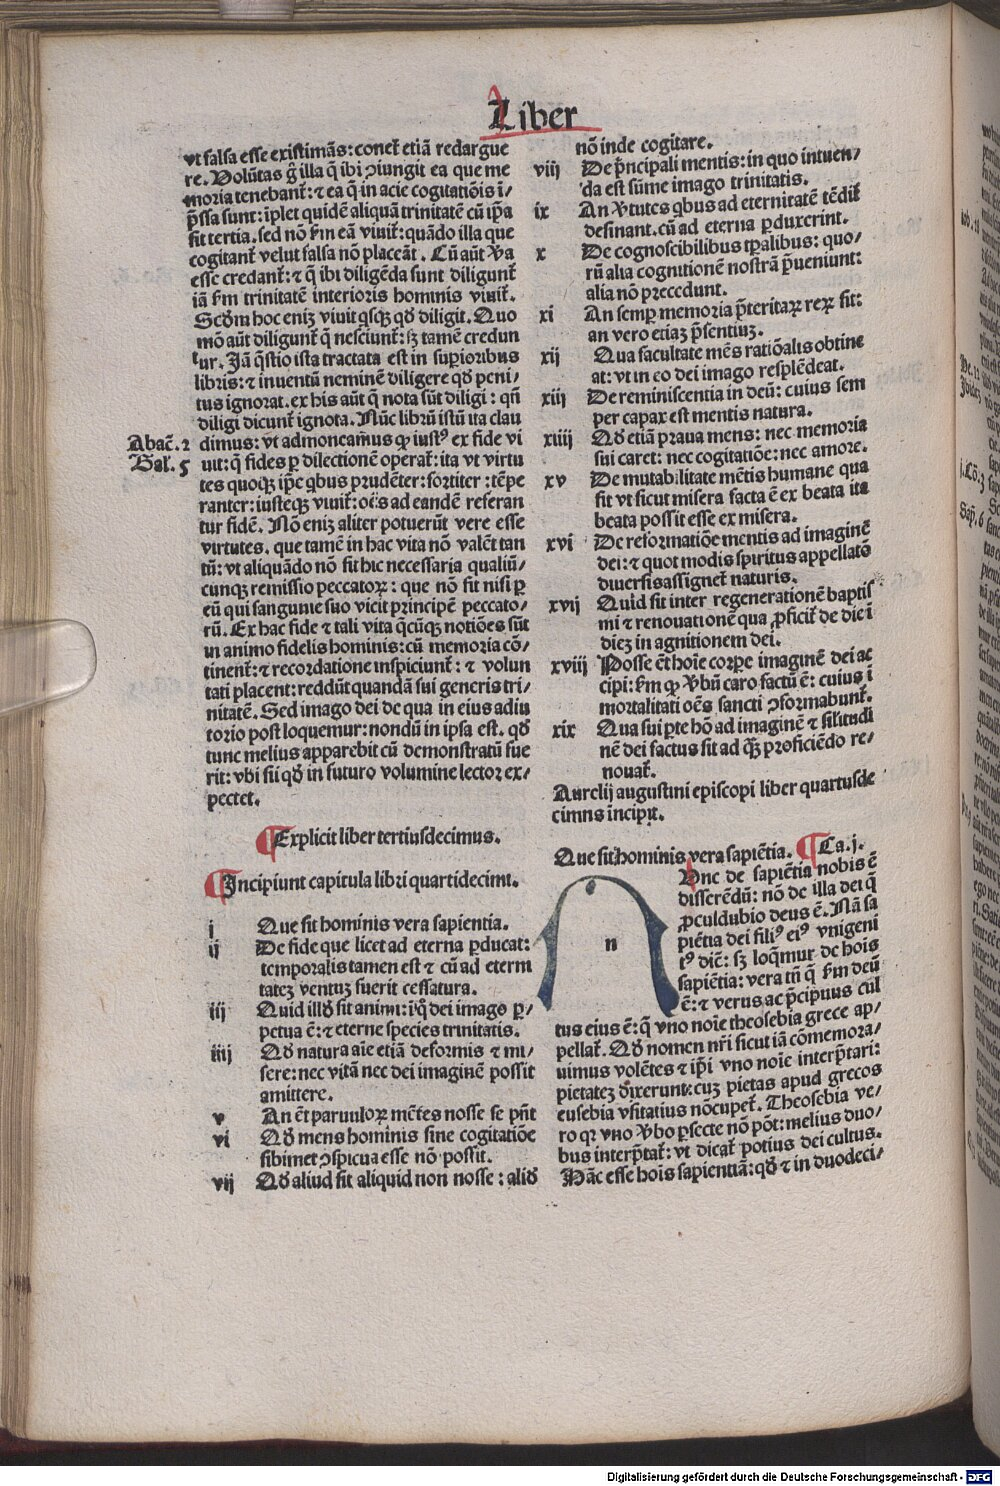 Liber
vt falsa esse existimãs: conet᷑ etiã redargue
re. Volũtas g̃ illa q̃ ibi ↄiungit ea que me
moria tenebant᷑: ⁊ ea q̃ in acie cogitatiõis ĩ/
p̃ssa sunt: ĩplet quidẽ aliquã trinitatẽ cũ ip̃a
sit tertia. sed nõ ẜm eã viuit᷑: quãdo illa que
cogitant᷑ velut falsa nõ placeãt. Cũ aũt ꝟa
esse credant᷑: ⁊ q̃ ibi diligẽda sunt diligunt᷑
iã ẜm trinitatẽ interioris hominis viuit᷑.
Scd̓m hoc eniꝫ viuit qsqꝫ qd̓ diligit. Quo
mõ aũt diligunt᷑ q̃ nesciunt᷑: sꝫ tamẽ credun
tur. Jã q̃stio ista tractata est in superioribus
libris: ⁊ inuentũ neminẽ diligere qd̓ peni/
tus ignorat. ex his aũt q̃ nota sũt diligi: qñ
diligi dicunt᷑ ignota. Nũc librũ istũ ita clau
Abac̃. 2 dimus: vt admoneam᷑us ꝙ iustꝰ ex fide vi
Gal. 5 uit: q̃ fides ꝑ dilectionẽ operat᷑: ita vt virtu
tes quoqꝫ ip̃e qbus prudẽter: fortiter: tẽpe
ranter: iusteqꝫ viuit᷑: oẽs ad eandẽ referan
tur fidẽ. Nõ eniꝫ aliter potuerũt vere esse
virtutes. que tamẽ in hac vita nõ valẽt tan
tũ: vt aliquãdo nõ sit hic necessaria qualiũ/
cunqꝫ remissio peccatoꝝ: que nõ fit nisi ꝑ
eũ qui sanguine suo vicit principẽ peccato/
rũ. Ex hac fide ⁊ tali vita q̃cũqꝫ notiões sũt
in animo fidelis hominis: cũ memoria cõ/
tinent᷑: ⁊ recordatione inspiciunt᷑: ⁊ volun
tati placent: reddũt quandã sui generis tri/
nitatẽ. Sed imago dei de qua in eius adiu
torio post loquemur: nondũ in ipsa est. qd̓
tunc melius apparebit cũ demonstratũ fue
rit: vbi sii qd̓ in futuro volumine lector ex/
pectet.
¶Explicit liber tertiusdecimus.
¶Incipiunt capitula libri quartidecimi.
i Que sit hominis vera sapientia.
ij De fide que licet ad eterna ꝑducat:
temporalis tamen est ⁊ cũ ad eterna
tateꝫ ventuꝫ fuerit cessatura.
iij Quid illd̓ sit animi: ĩ q̊ dei imago ꝑ/
petua ẽ: ⁊ eterne species trinitatis.
iiij Qd̓ natura aĩe etiã deformis ⁊ mi/
sere: nec vitã nec dei imaginẽ possit
amittere.
v An ẽt paruuloꝝ mẽtes nosse se pñt
vi Qd̓ mens hominis sine cogitatiõe
sibimet ↄspicua esse nõ possit.
vij Qd̓ aliud sit aliquid non nosse: aliud̓
nõ inde cogitare.
viij De p̃ncipali mentis: in quo intuen/
da est sũme imago trinitatis.
ix An ꝟtutes qbus ad eternitatẽ tẽdit᷑
desinant. cũ ad eterna ꝑduxerint.
x De cognoscibilibus tp̃alibus: quo/
rũ alia cognitionẽ nostrã p̃ueniunt:
alia nõ precedunt.
xi An semꝑ memoria p̃teritaꝝ reꝝ sit:
an vero etiaꝫ p̃sentiuꝫ.
xij Qua facultate mẽs ratiõalis obtine
at: vt in eo dei imago resplẽdeat.
xiij De reminiscentia in deũ: cuius sem
per capax est mentis natura.
xiiij Qd̓ etiã praua mens: nec memoria
sui caret: nec cogitatiõe: nec amore.
xv De mutabilitate mẽtis humane qua
fit vt sicut misera facta ẽ ex beata ita
beata possit esse ex misera.
xvi De reformatiõe mentis ad imaginẽ
dei: ⁊ quot modis spiritus appellatõ
diuersis assignet᷑ naturis.
xvij Quid sit inter regenerationẽ baptis
mi ⁊ renouationẽ qua ꝓficit᷑ de die ĩ
dieꝫ in agnitionem dei.
xviij Posse ẽt hoĩe corꝑe imaginẽ dei ac
cipi: ẜm ꝙ ꝟbũ caro factũ ẽ: cuius ĩ
mortalitati oẽs sancti ↄformabunt᷑.
xix Qua sui ꝑte hõ ad imaginẽ ⁊ silitudi
nẽ dei factus sit ad q̃ꝫ proficiẽdo re/
nouat᷑.
Aurelij augustini episcopi liber quartusde
cimus incipit.
Que sit hominis vera sapiẽtia. ¶Ca. j.
n
Vnc de sapiẽtia nobis ẽ
disserẽdũ: nõ de illa dei q̃
ꝓculdubio deus ẽ. Nã sa
piẽtia dei filiꝰ eiꝰ vnigeni
tꝰ diẽ: sꝫ loq̃mur de hoĩs
sapiẽtia: vera tñ q̃ ẜm deũ
ẽ: ⁊ verus ac p̃cipuus cul
tus eius ẽ: q̃ vno noĩe theosebia grece ap/
pellat᷑. Qd̓ nomen nr̃i sicut iã cõmemora/
uimus volẽtes ⁊ ip̃i vno noĩe interp̃tari:
pietateꝫ dixerunt: cuꝫ pietas apud grecos
eusebia vsitatius nõcupet᷑. Theosebia ve/
ro qꝛ vno ꝟbo ꝑfecte nõ põt: melius duo/
bus interp̃tat᷑: vt dicat᷑ potius dei cultus.
Hãc esse hoĩs sapientiã: qd̓ ⁊ in duodeci/
Digitalisierung gefördert durch die Deutsche Forschungsgemeinschaft - DFG